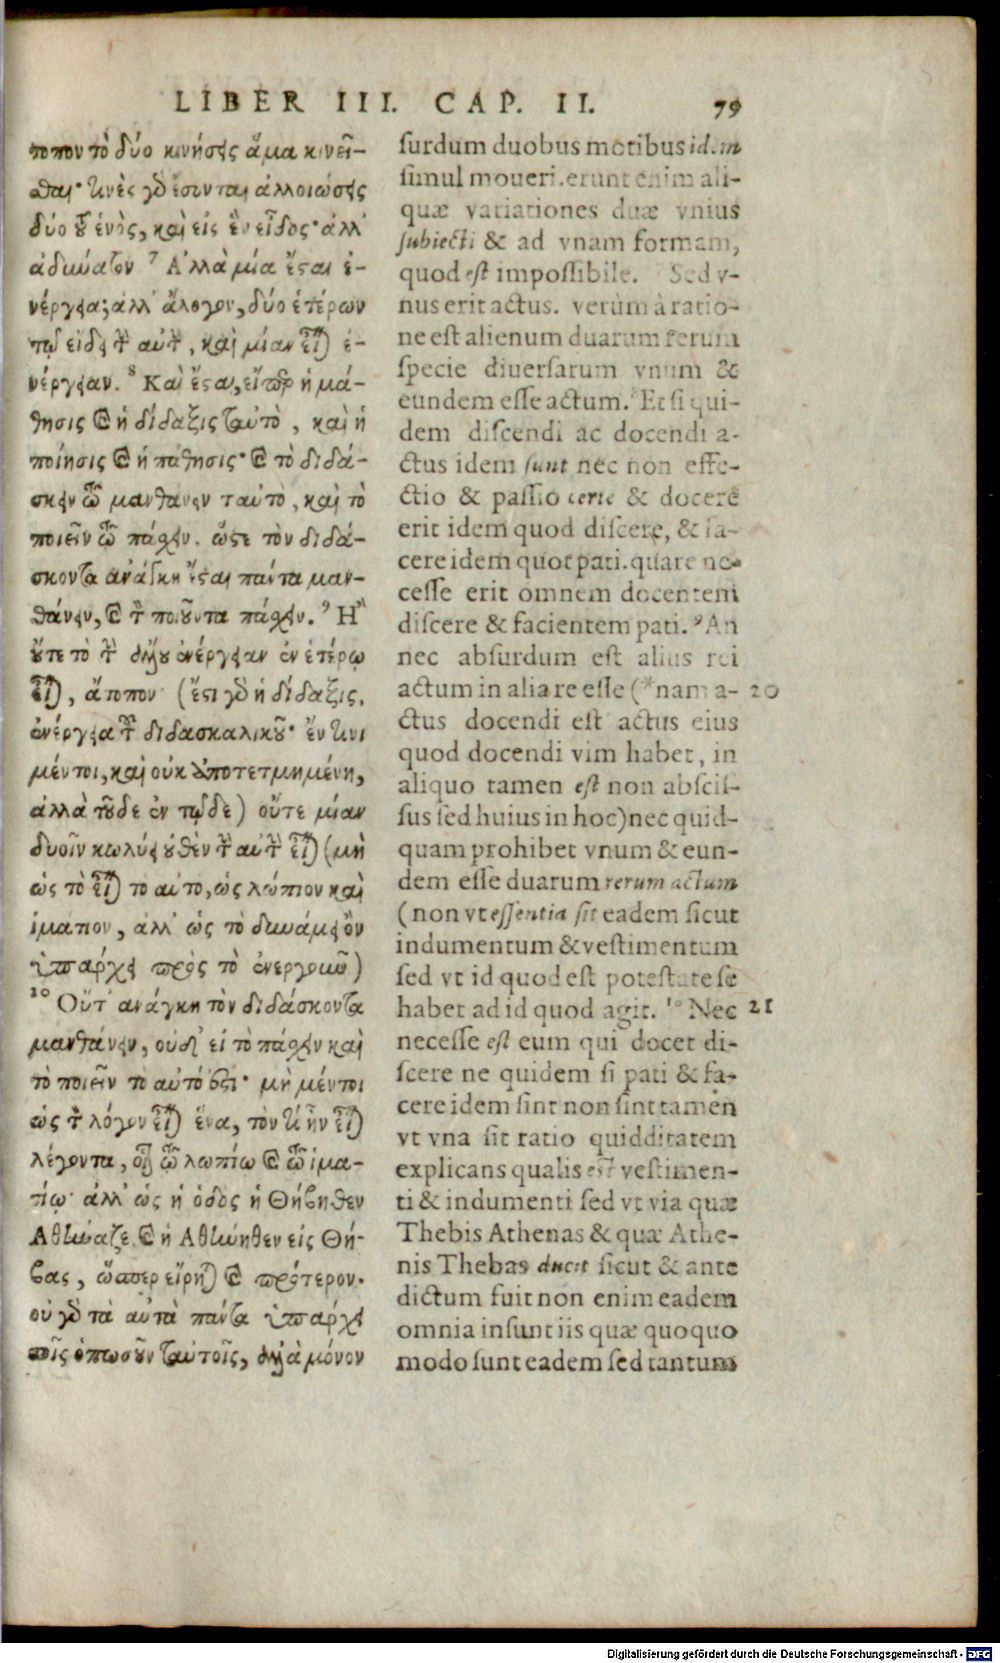 LIBER III. CAP. II. 79
τοπον τὸ δύο κινήσεις ἅμα κινεῖ-
σθαι· τινὲς γὰρ ἔσονται ἀλλοιώσεις
δύο τοῦ ἑνὸς, καὶ εἰς ἓν εἶδος· ἀλλ'
ἀδύνατον 7 Ἀλλὰ μία ἔσται ἐ-
νέργεια; ἀλλ' ἄλογον, δύο ἑτέρων
τῷ εἴδει τὴν αὐτὴν, καὶ μίαν εἶναι ἐ-
νέργειαν. 8 Καὶ ἔσται, εἴπερ ἡ μά-
θησις καὶ ἡ δίδαξις ταὐτὸ, καὶ ἡ
ποίησις καὶ ἡ πάθησις· καὶ τὸ διδά-
σκειν τῷ μανθάνειν ταὐτὸ, καὶ τὸ
ποιεῖν τῷ πάσχειν. ὥστε τὸν διδά-
σκοντα ἀνάγκη ἔσται πάντα μαν-
θάνειν, καὶ τὸν ποιοῦντα πάσχειν. 9 Ἢ
οὔτε τὸ τὴν ἄλλου ἐνέργειαν ἐν ἑτέρῳ
εἶναι, ἄτοπον (ἔστι γὰρ ἡ δίδαξις,
ἐνέργεια τοῦ διδασκαλικοῦ· ἔν τινι
μέντοι, καὶ οὐκ ἀποτετμημένη,
ἀλλὰ τοῦδε ἐν τῷδε) οὔτε μίαν
δυοῖν κωλύει οὐθὲν τὴν αὐτὴν εἶναι (μὴ
ὡς τὸ εἶναι τὸ αὐτὸ, ὡς λώπιον καὶ
ἱμάτιον, ἀλλ' ὡς τὸ δυνάμει ὂν
ὑπάρχει πρὸς τὸ ἐνεργοῦν)
10 Οὔτ' ἀνάγκη τὸν διδάσκοντα
μανθάνειν, οὐδ' εἰ τὸ πάσχειν καὶ
τὸ ποιεῖν τὸ αὐτό ἐστι· μὴ μέντοι
ὡς τὸν λόγον εἶναι ἕνα, τὸν τί ἦν εἶναι
λέγοντα, οἷον τῷ λωπίῳ καὶ τῷ ἱμα-
τίῳ· ἀλλ' ὡς ἡ ὁδὸς ἡ Θήβηθεν
Ἀθήναζε καὶ ἡ Ἀθήνηθεν εἰς Θή-
βας, ὥσπερ εἴρηται καὶ πρότερον.
οὐ γὰρ τὰ αὐτὰ πάντα ὑπάρχει
τοῖς ὁπωσοῦν ταὐτοῖς, ἀλλὰ μόνον
surdum duobus motibus idem
simul moueri. erunt enim ali-
quæ variationes duæ vnius
subiecti & ad vnam formam,
quod est impossibile. Sed v-
nus erit actus. verùm à ratio-
ne est alienum duarum rerum
specie diuersarum vnum &
eundem esse actum. 8 Et si qui-
dem discendi ac docendi a-
ctus idem sunt nec non effe-
ctio & passio certe & docere
erit idem quod discere, & fa-
cere idem quot pati. quare ne-
cesse erit omnem docentem
discere & facientem pati. 9 An
nec absurdum est alius rei
actum in alia re esse (*nam a- 20
ctus docendi est actus eius
quod docendi vim habet, in
aliquo tamen est non abscis-
sus sed huius in hoc) nec quid-
quam prohibet vnum & eun-
dem esse duarum rerum actum
(non vt essentia sit eadem sicut
indumentum & vestimentum
sed vt id quod est potestate se
habet ad id quod agit. 10 Nec 21
necesse est eum qui docet di-
scere ne quidem si pati & fa-
cere idem sint non sint tamen
vt vna sit ratio quidditatem
explicans qualis est vestimen-
ti & indumenti sed vt via quæ
Thebis Athenas & quæ Athe-
nis Thebas ducit sicut & ante
dictum fuit non enim eadem
omnia insunt iis quæ quoquo
modo sunt eadem sed tantum
Digitalisierung gefördert durch die Deutsche Forschungsgemeinschaft - DFG